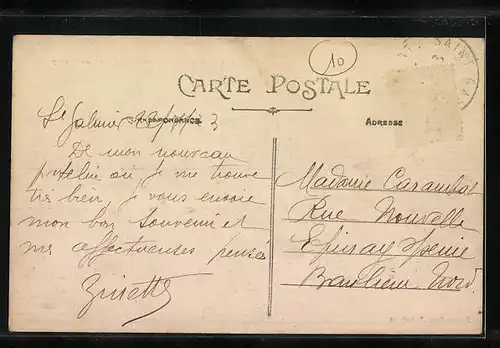 10
SAINT GAL
CARTE POSTALE
CORRESPONDANCE
ADRESSE
St Galmier 3
De mon nouveau
où je me trouve
très bien, je vous envoie
mon bon souvenir et
mes affectueuses pensées
Zinette
Madame
Rue Nouvelle
Epinay
Banlieue Nord